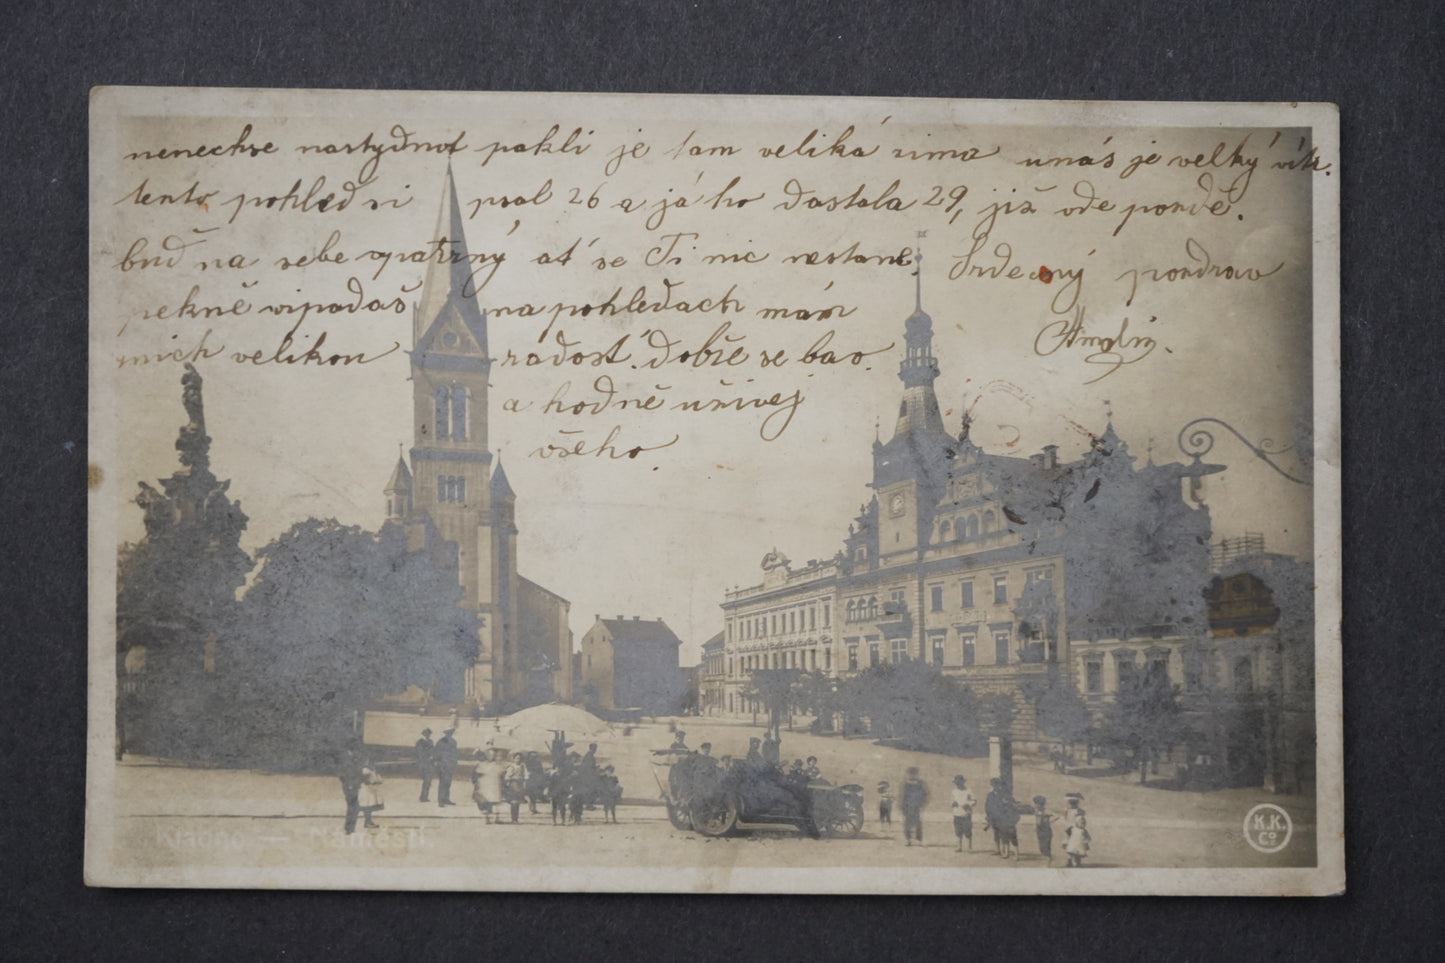 nenechse nastyďnot pakli je tam veliká zima unás je velký vítr.
tento pohleď si psal 26 a já ho ďostala 29, již oďe pondě.
buď na sebe opatrný ať se Ti nic nestane. Srdečný pozdrav
pekně vipadaš na pohleďach mám
z nich velikou raďost. ďobře se bav.
a hoďně užívej
všeho.
Kladno — Náměstí.
K.K. Co